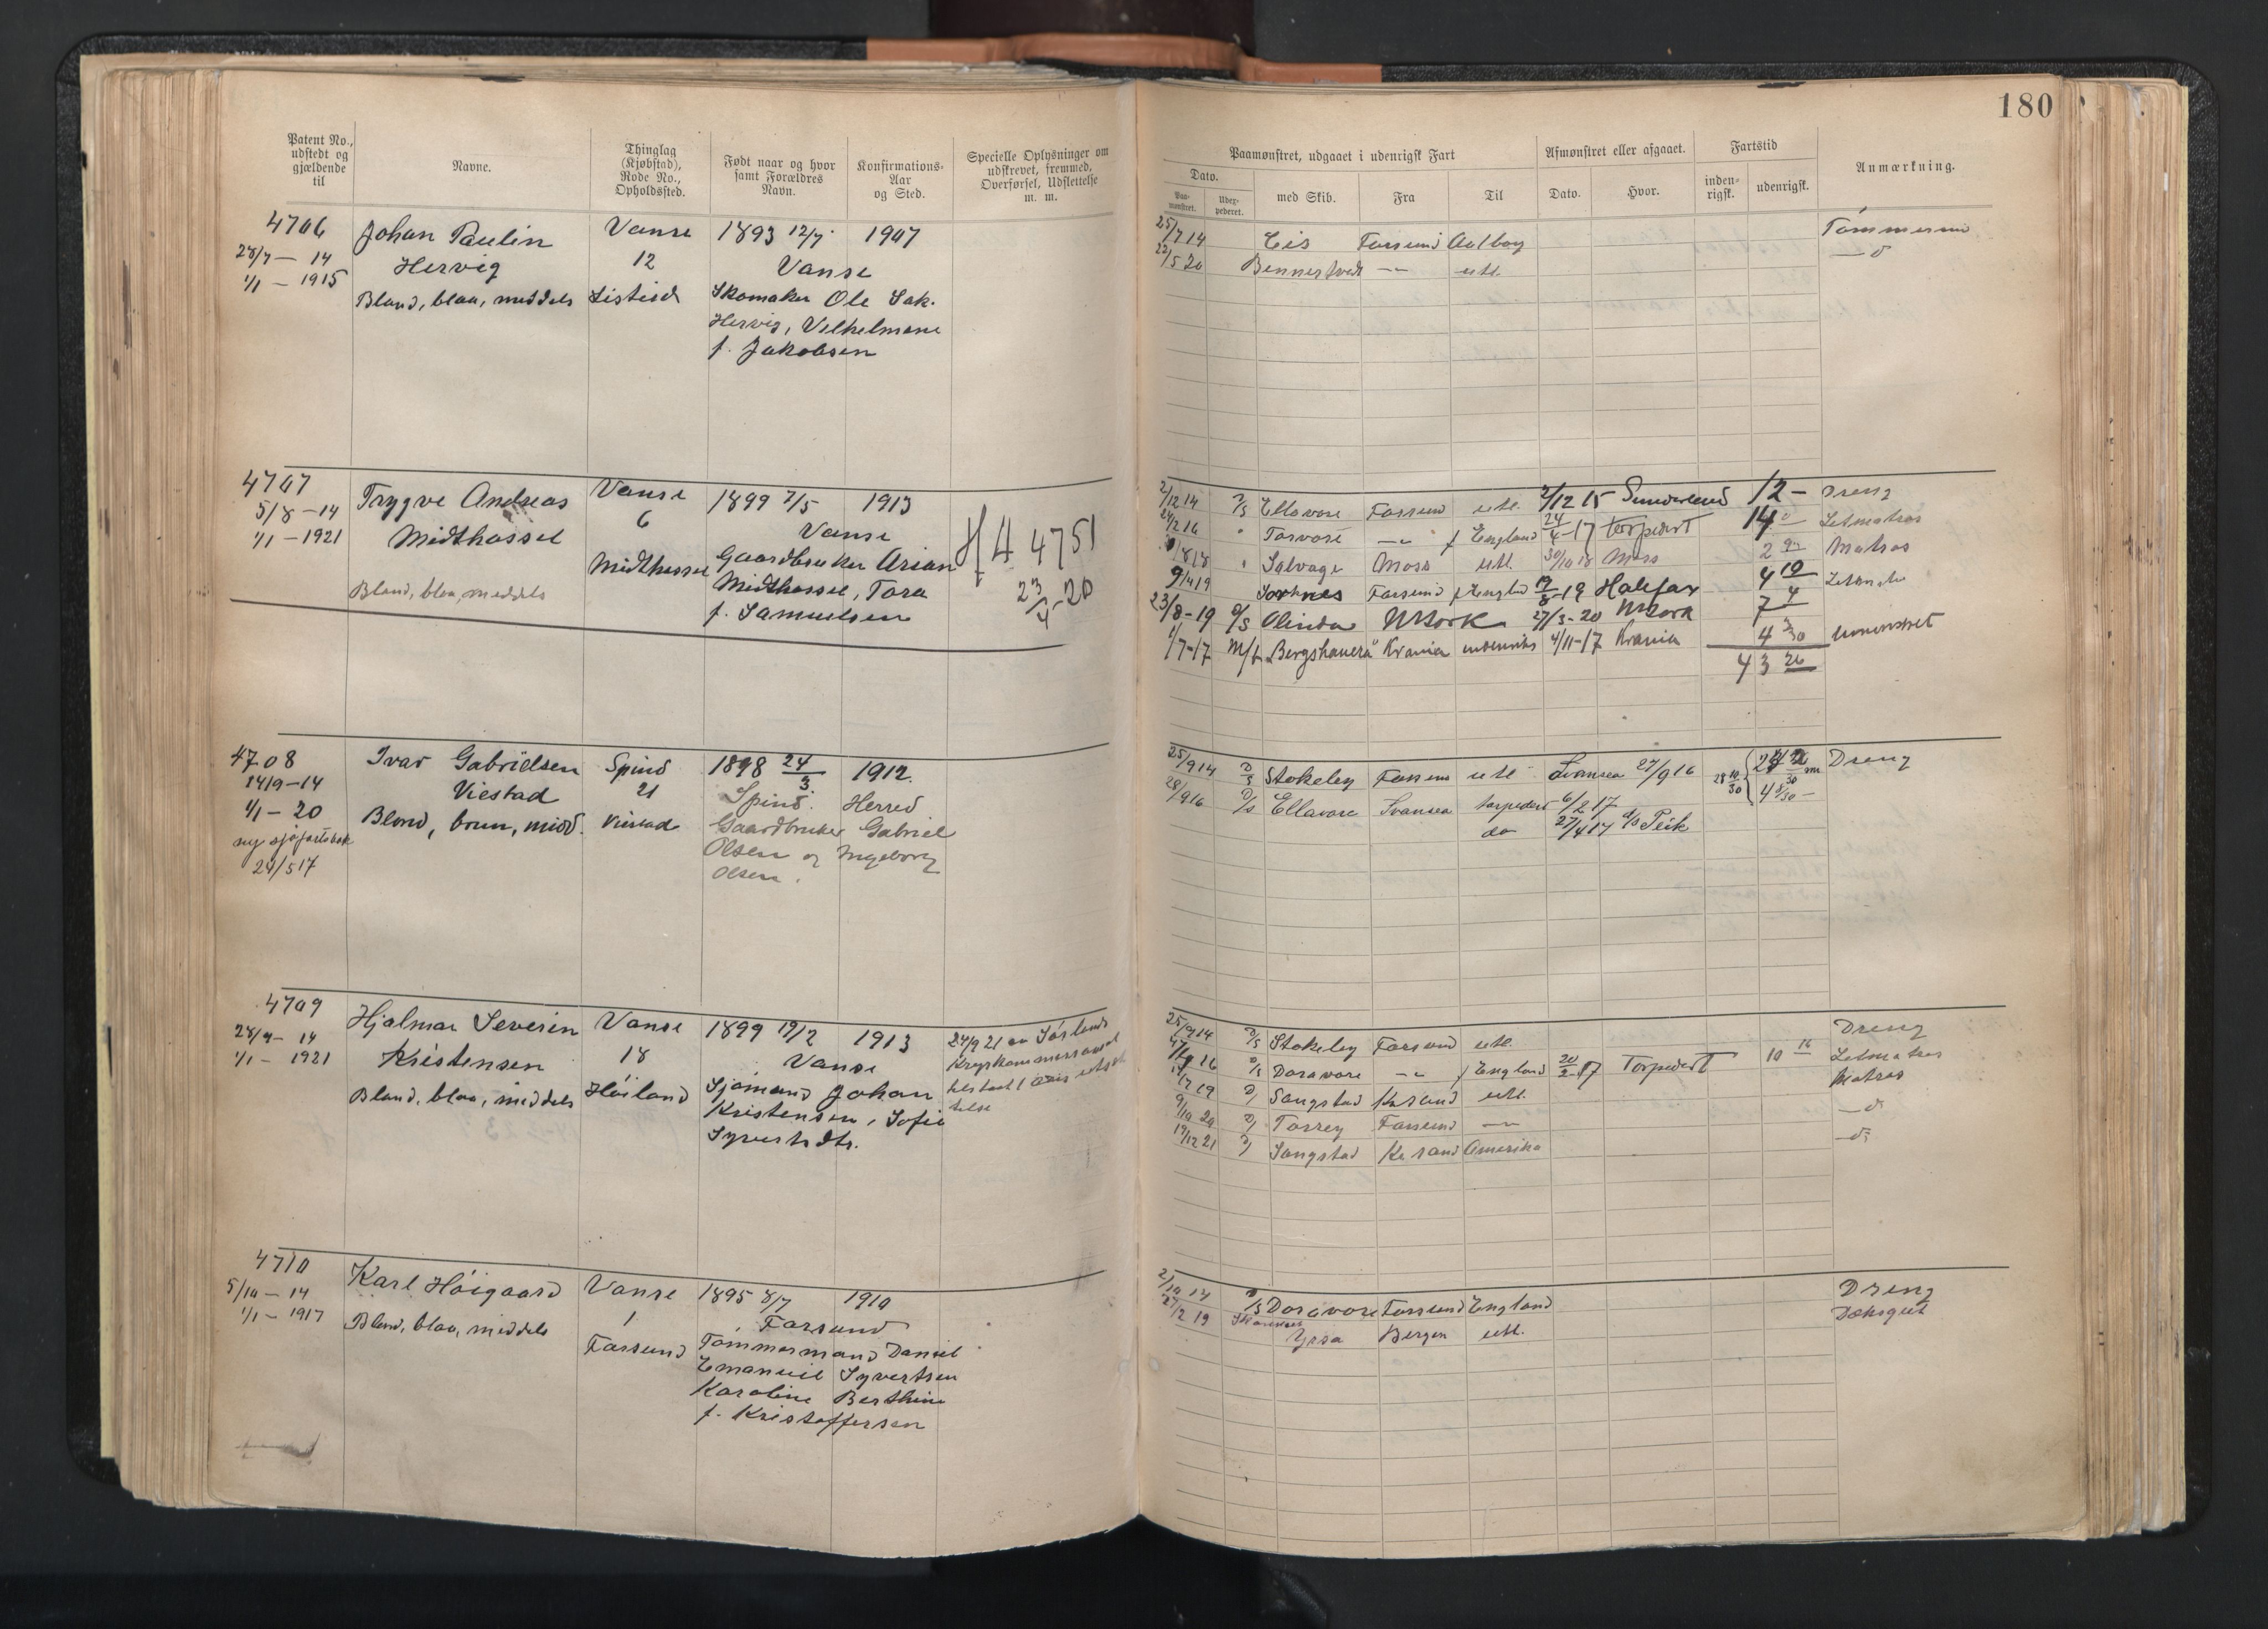 180
Patent No., udstedt og gjældende til
Navne.
Thinglag (Kjøbstad), Rode No., Opholdssted.
Født naar og hvor samt Forældres Navn.
Konfirmations-Aar og Sted.
Specielle Oplysninger om udskrevet, fremmed, Overførsel, Udslettelse m. m.
Paamønstret, udgaaet i udenrigsk Fart
Afmønstret eller afgaaet.
Fartstid
Anmærkning.
Dato.
Paa-mønstret.
Udex-pederet.
med Skib.
Fra
Til
Dato.
Hvor.
inden-rigsk.
udenrigsk.
4706 Johan Paulin Vanse 1893 12/7 1907
28/7 - 14 Hervig 12 Vanse
1/1 - 1915 Blond, blaa, middels Listeid Skomaker Ole Sak.
Hervig, Vilhelmine
f. Jakobsen
25/7 14 Eis Farsund Aalborg Tømmermd
22/5 20 Bennestvedt -"- utl. -d
4707 Trygve Andreas Vanse 1899 7/5 1913
5/8 - 14 Midthassel 6 Vanse
1/1 - 1921 Midthassel Gaardbruker Arian
Blond, blaa, middels Midthassel, Tora
f. Samuelsen
H 4751
23/4-20
2/12 14 D/S Ellavore Farsund utl. 2/12 15 Sunderland 12 - Dreng
24/2 16 " Torvore -"- f England 24/4-17 torpedert 14 Letmatros
8 18 " Salvage Moss utl. 30/10 18 Moss 2 Matros
9/4 19 Sorknes Farsund f England 8-19 Halifax 4 10
23/8-19 D/S Olinda NYork 27/3-20 NYork 7 4
1/7-17 M/k "Bergshavern" Krania indenriks 4/11-17 Krania 4 3/30 umønstret
43 26
4708 Ivar Gabrielsen Spind 1898 24/3 1912.
14/9-14 Viestad 21 Spind Herred
1/1 - 20 Blond, brun, midd. Viestad Gaardbruker Gabriel
ny sjøfartsbok Olsen og Ingeborg
24/5 17 Olsen.
25/9 14 D/S Stokeley Farsund utl Svansea 27/9 16 Dreng
28/9 16 D/S Ellavore Svansea torpedert 6/2 17 4 8/30 -
do 27/4 17 d/s Peik
4709 Hjalmar Severin Vanse 1899 19/2 1913
28/9 - 14 Kristensen 18 Vanse
1/1 - 1921 Blond, blaa, middels Høiland Sjømand Johan
Kristensen, Sofie
Syvertsdtr.
24/9 21 av Sørlands
25/9 14 D/S Stokeley Farsund utl. Dreng
16 D/S Doravore -"- f England 20/2-17 Torpedert 10 16 Letmatros
19 D/ Songstad Krsand utl. Matros
9/10 20 D/ Torrey Farsund -"- -d
19/12 21 D/ Songstad Krsand Amerika -d
4710 Karl Høigaard Vanse 1895 8/7 1910
5/10 - 14 1 Farsund
1/1 - 1917 Blond, blaa, middels Farsund Tømmermand Daniel
Emanuel Syvertsen
Karoline Berthine
f. Kristoffersen
2/10 14 D/S Doravore Farsund England Dreng
27/2 19 Yrsa Bergen utl. Dæksgut